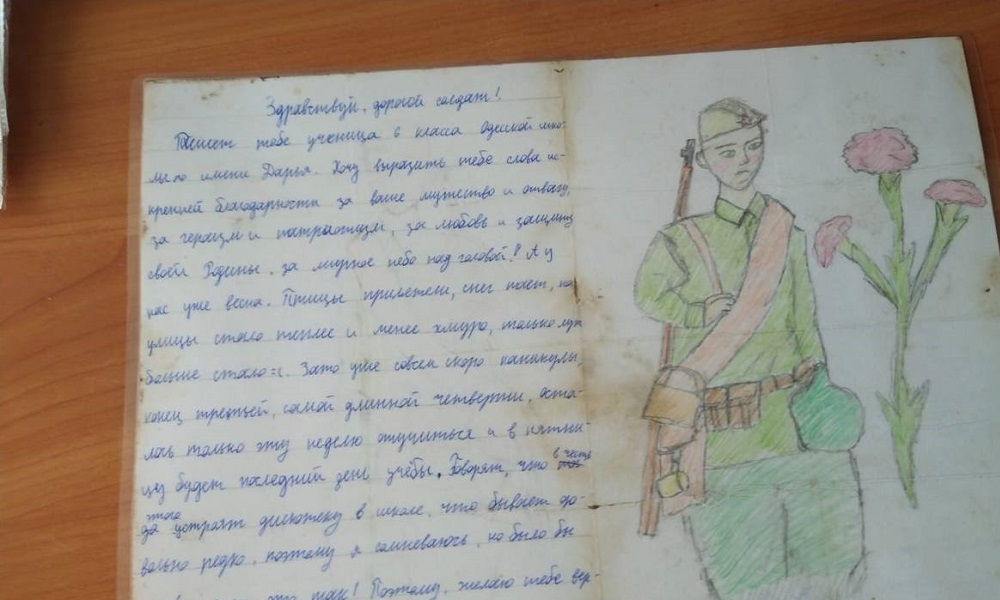 Здравствуй, дорогой солдат!
Пишет тебе ученица 6 класса Одесской шко-
лы по имени Дарья. Хочу выразить тебе слова ис-
кренней благодарности за ваше мужество и отвагу,
за героизм и патриотизм, за любовь и защиту
своей Родины, за мирное небо над головой! А у
нас уже весна. Птицы прилетели, снег тает, на
улицы стало теплее и менее хмуро, только луж
больше стало =(. Зато уже совсем скоро каникулы,
конец третьей, самой длинной четверти, оста-
лось только эту неделю отучиться и в пятни-
цу будет последний день учёбы. Говорят, что в честь
этого устроят дискотеку в школе, что бывает до-
вольно редко, поэтому я сомневаюсь, но было бы
это так! Поэтому, желаю тебе вер-